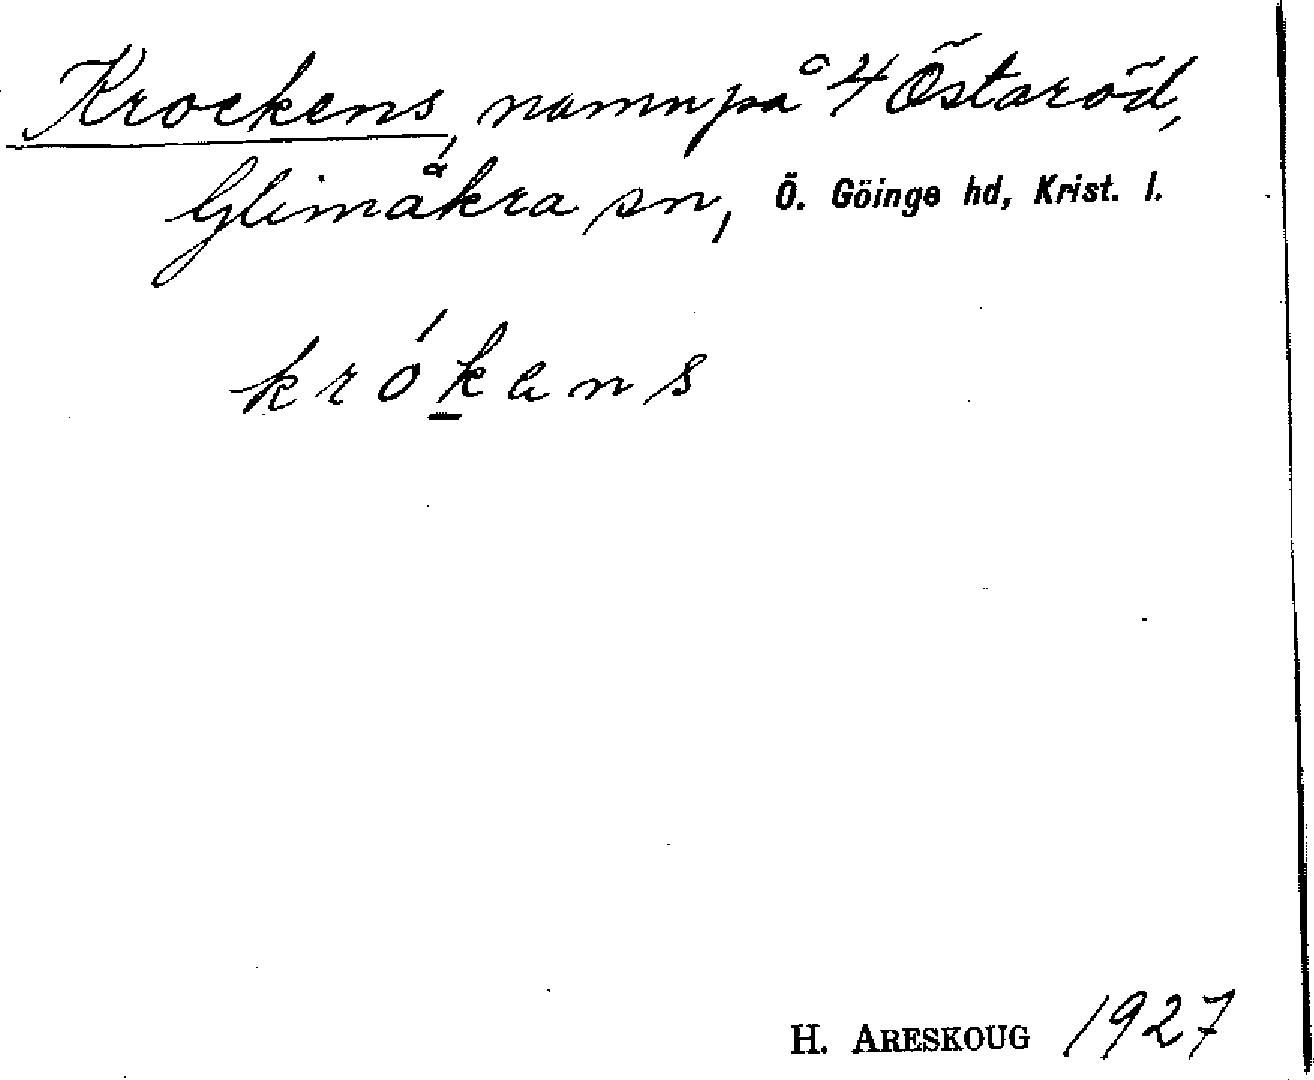 Krockens, namn på 4 Östaröd,
Glimåkra sn, Ö. Göinge hd, Krist. l.
krókens
H. ARESKOUG 1927